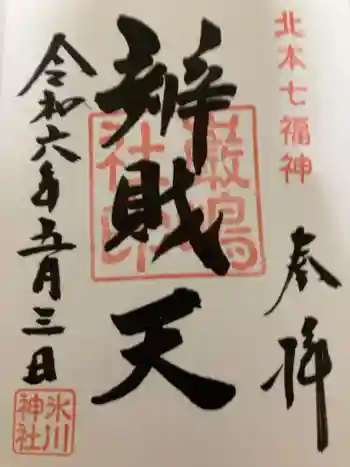 北本七福神
奉拝
辨財天
嚴島社印
令和六年五月三日
氷川神社